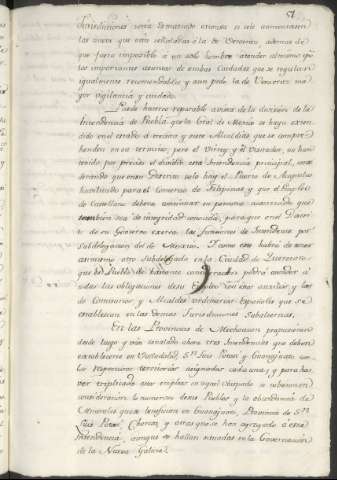 51
Jurisdicciones seria demasiado extensa si se aumentasen
las otras que van señaladas á la de Veracruz, ademas de
que fuera imposible á un solo hombre atender á un mismo
los importantes asuntos de ambas Ciudades que se regulan
igualmente recomendables, y aun pide la de Veracruz ma-
yor vigilancia y cuidado.
Puede hacerse reparable à vista de la division de la
Intendencia de Puebla que la Gral de Mexico se haya exten-
dido en el estado á treinta y siete Alcaldias que se compre-
henden en su termino, pero el Virrey y el Visitador, no han
tenido por preciso el dividir esta Intendencia principal, con-
siderando que en su distrito solo hay el Puerto de Acapulco
habilitado para el Comercio de Filipinas y que el Empleo
de Castellano deberia continuar en persona autorizada que
tambien sea de integridad conocida, para que en el Distri-
to de su Govierno exerza las funciones de Intendente por
Subdelegacion del de Mexico. Y como este habrá de tener
asimismo otro Subdelegado en la Ciudad de Queretaro
que es Pueblo de bastante consideracion podrá atender á
todas las obligaciones de su Empleo con este auxilio y las
de Comisarios y Alcaldes ordinarios Españoles que se
establezcan en las demas Jurisdicciones Subalternas.
En las Provincias de Mechoacan propusieron
desde luego y van señaladas ahora tres Intendencias que deben
establecerse en Valladolid, Sn. Luis Potosi y Guanajuato con
los respectivos territorios asignados á cada una; y para ha-
ver triplicado este empleo en aquel Obispado se tubieron en
consideracion lo numeroso de sus Pueblos y la abundancia de
Minerales que se benefician en Guanajuato, Provincia de Sn.
Luis Potosi, Charcas, y otras que se han agregado a esta
Intendencia, aunque se hallan situadas en la Governacion
de la Nueva Galicia.